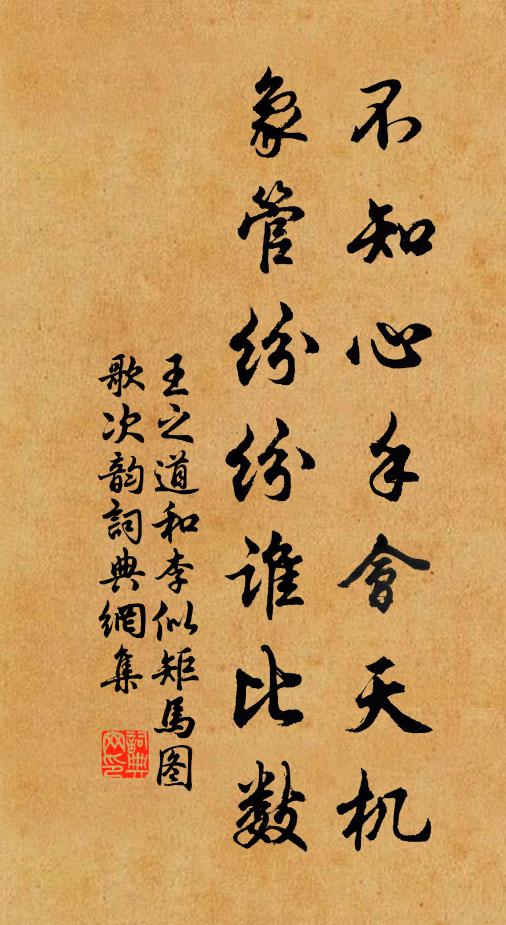 不知心手會天机
象管纷纷谁比数
王之道和李似矩馬图
歌次韵詞典網集